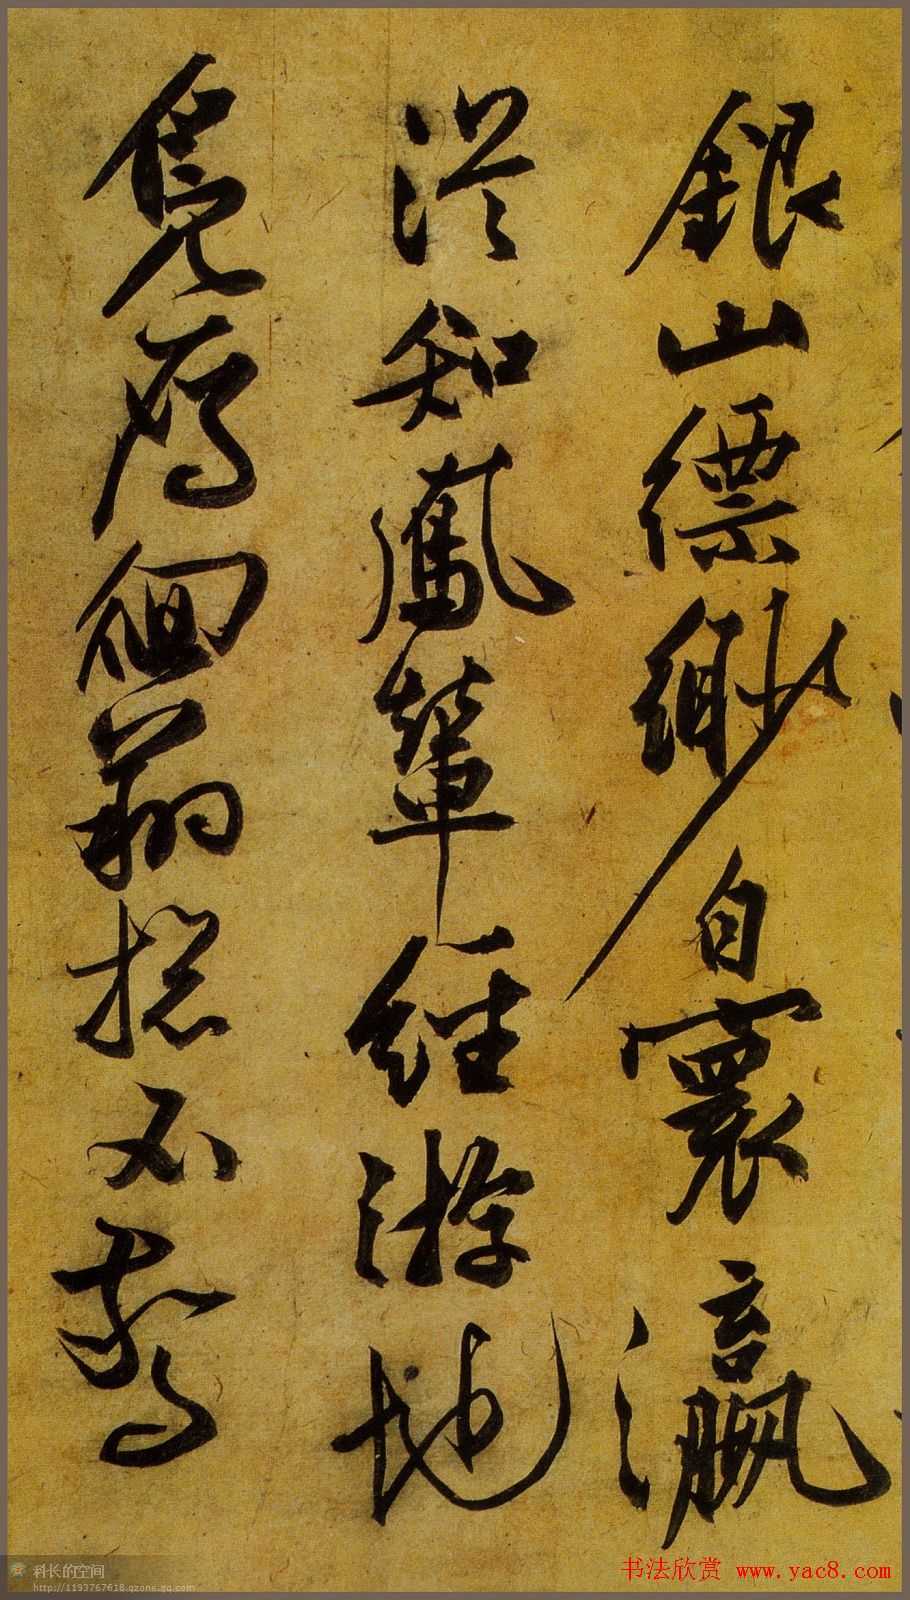 銀山縹緲自寰瀛
從知鳳輦經游地
鳧鴈徊翔揔不驚
科长的空间
http://1193767618.qzone.qq.com
书法欣赏 www.yac8.com